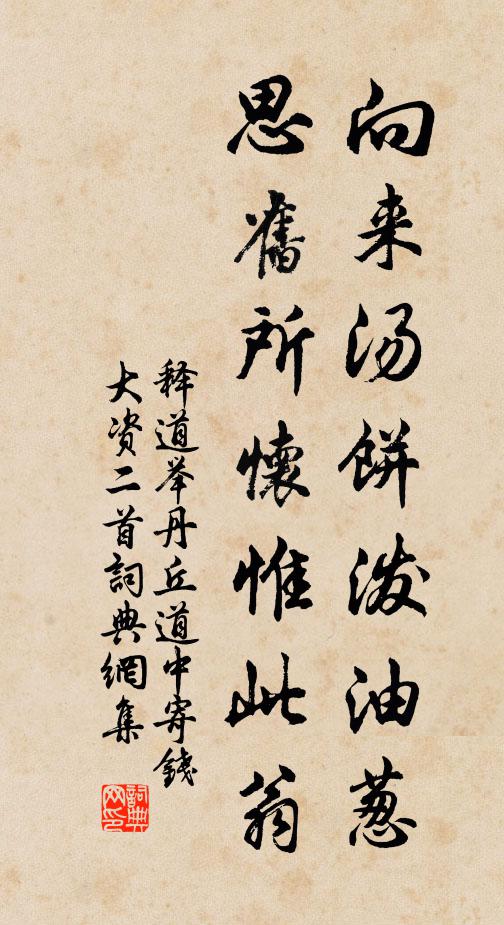 向来汤餅泼油葱
思舊所懷惟此翁
释道举丹丘道中寄錢
大资二首詞典網集
詞典
网印